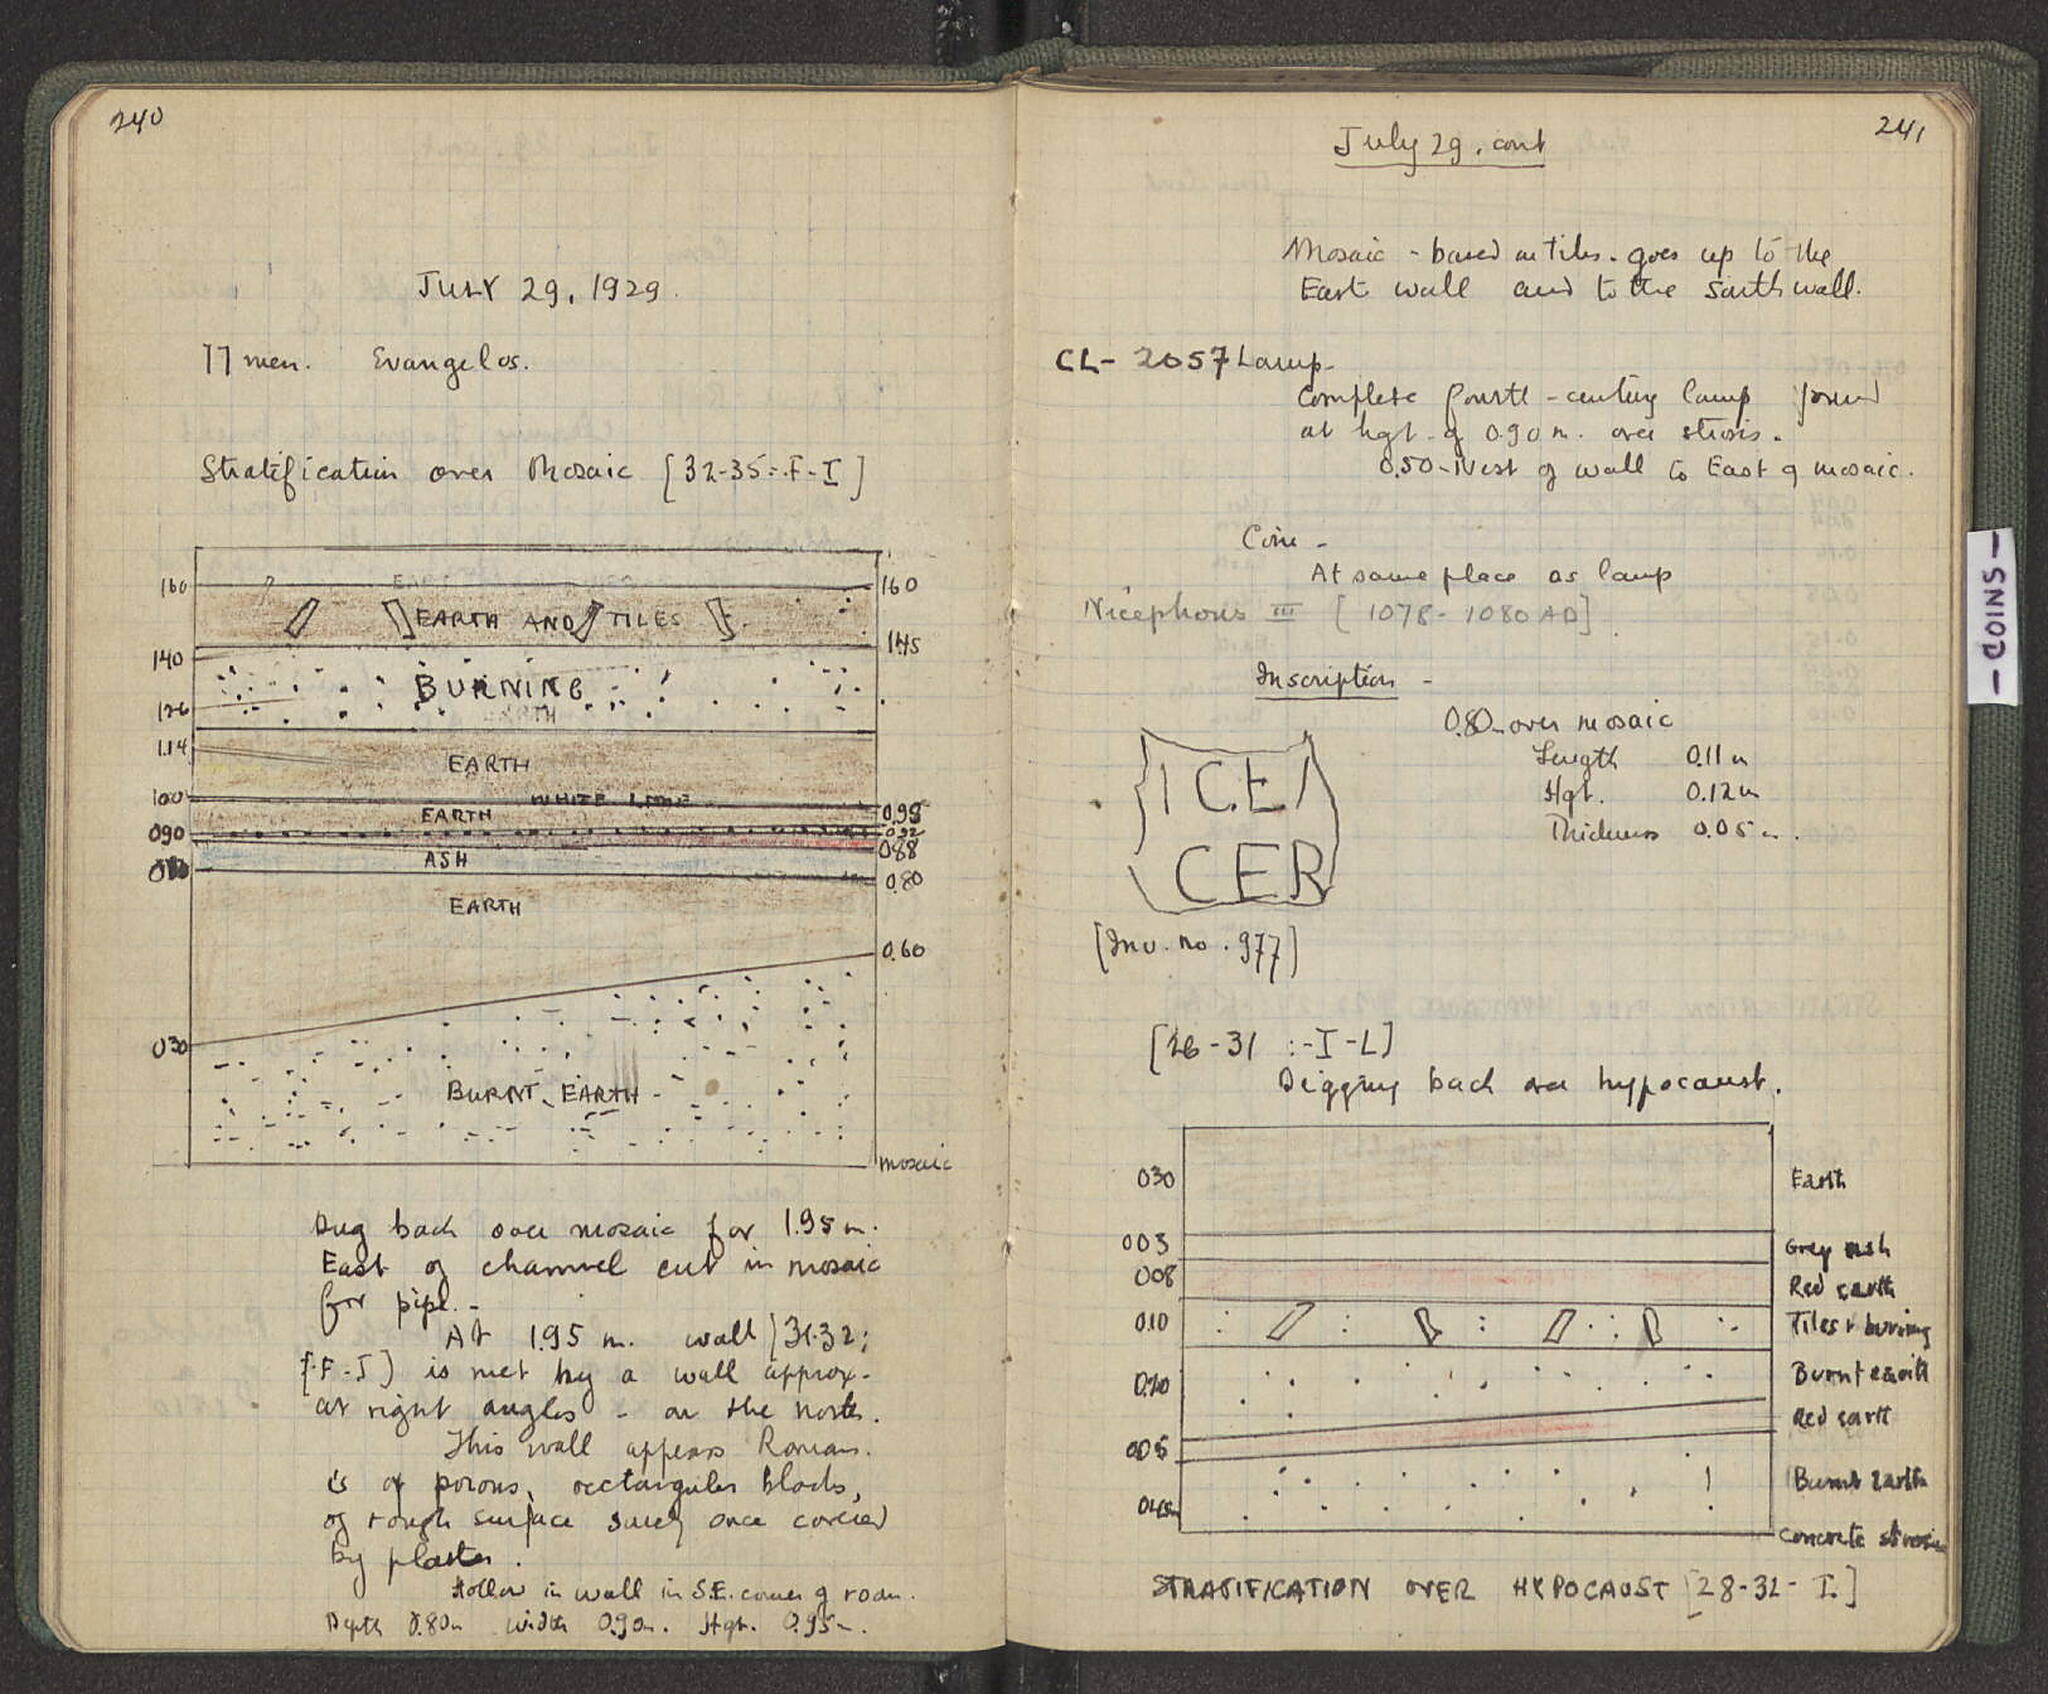 240
JULY 29, 1929.
17 men. Evangelos.
Stratification over Mosaic [32-35=.F-I]
160
160
EARTH AND TILES
1.45
140
BURNING
126
EARTH
1.14
EARTH
100
WHITE LINE
0.98
EARTH
090
0.92
088
ASH
0.80
EARTH
0.60
030
BURNT EARTH
mosaic
Dug back over mosaic for 1.95 m.
East of channel cut in mosaic
for pipe. -
At 1.95 m. wall [31-32;
[F-I] is met by a wall approx-
at right angles - on the north.
This wall appears Roman.
is of porous, rectangular blocks,
of rough surface surely once covered
by plaster.
Hollow in wall in S.E. corner of room.
Depth 0.80m width 0.90m. Hgt. 0.95m.
241
July 29, cont
Mosaic - based on tiles - goes up to the
East wall and to the South wall.
CL- 2057 Lamp-
Complete fourth-century lamp found
at hgt. of 0.90 m. over strosis.
0.50-West of wall to East of mosaic.
Coin -
At same place as lamp
Nicephorus III [1078-1080 AD]
Inscription -
0.80-over mosaic
Length 0.11 m
Hgt. 0.12m
Thickness 0.05 m.
ICEI
CER
[Inv. no. 977]
[26-31 :-I-L]
Digging back over hypocaust.
030 Earth
003 Grey ash
008 Red earth
0.10 Tiles + burning
0.20 Burnt earth
Red earth
005
Burnt Earth
Concrete strosis
STRATIFICATION OVER HYPOCAUST [28-32- I.]
- COINS -